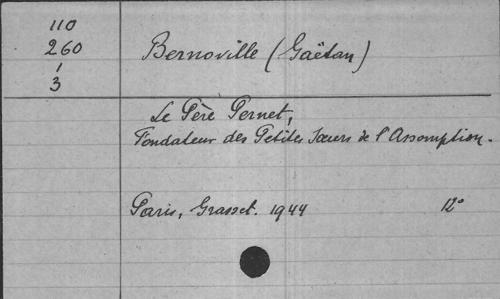 110
260
1
3
Bernoville (Gaëtan)
Le Père Pernet,
Fondateur des Petites Sœurs de l'Assomption.
Paris, Grasset. 1944 12°